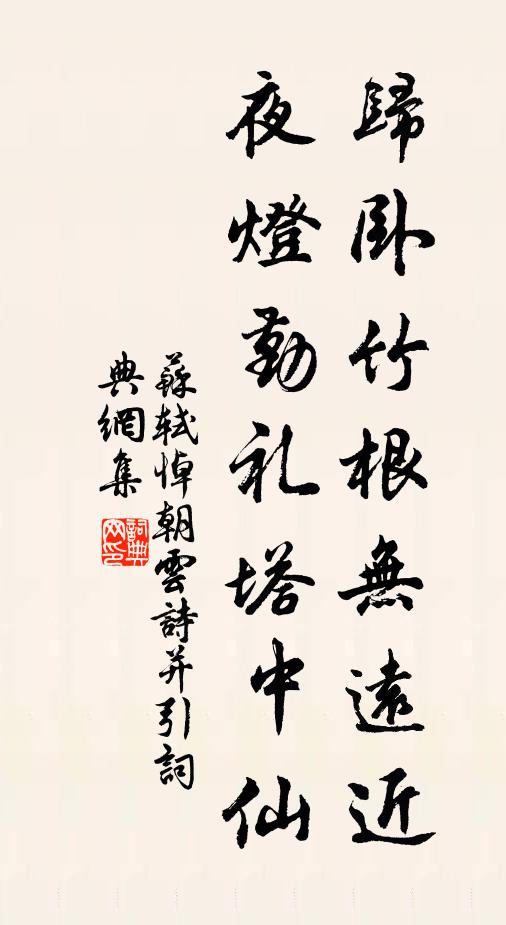 歸卧竹根無遠近
夜燈勤礼塔中仙
蘇軾悼朝雲詩并引詞
典網集
詞典网印